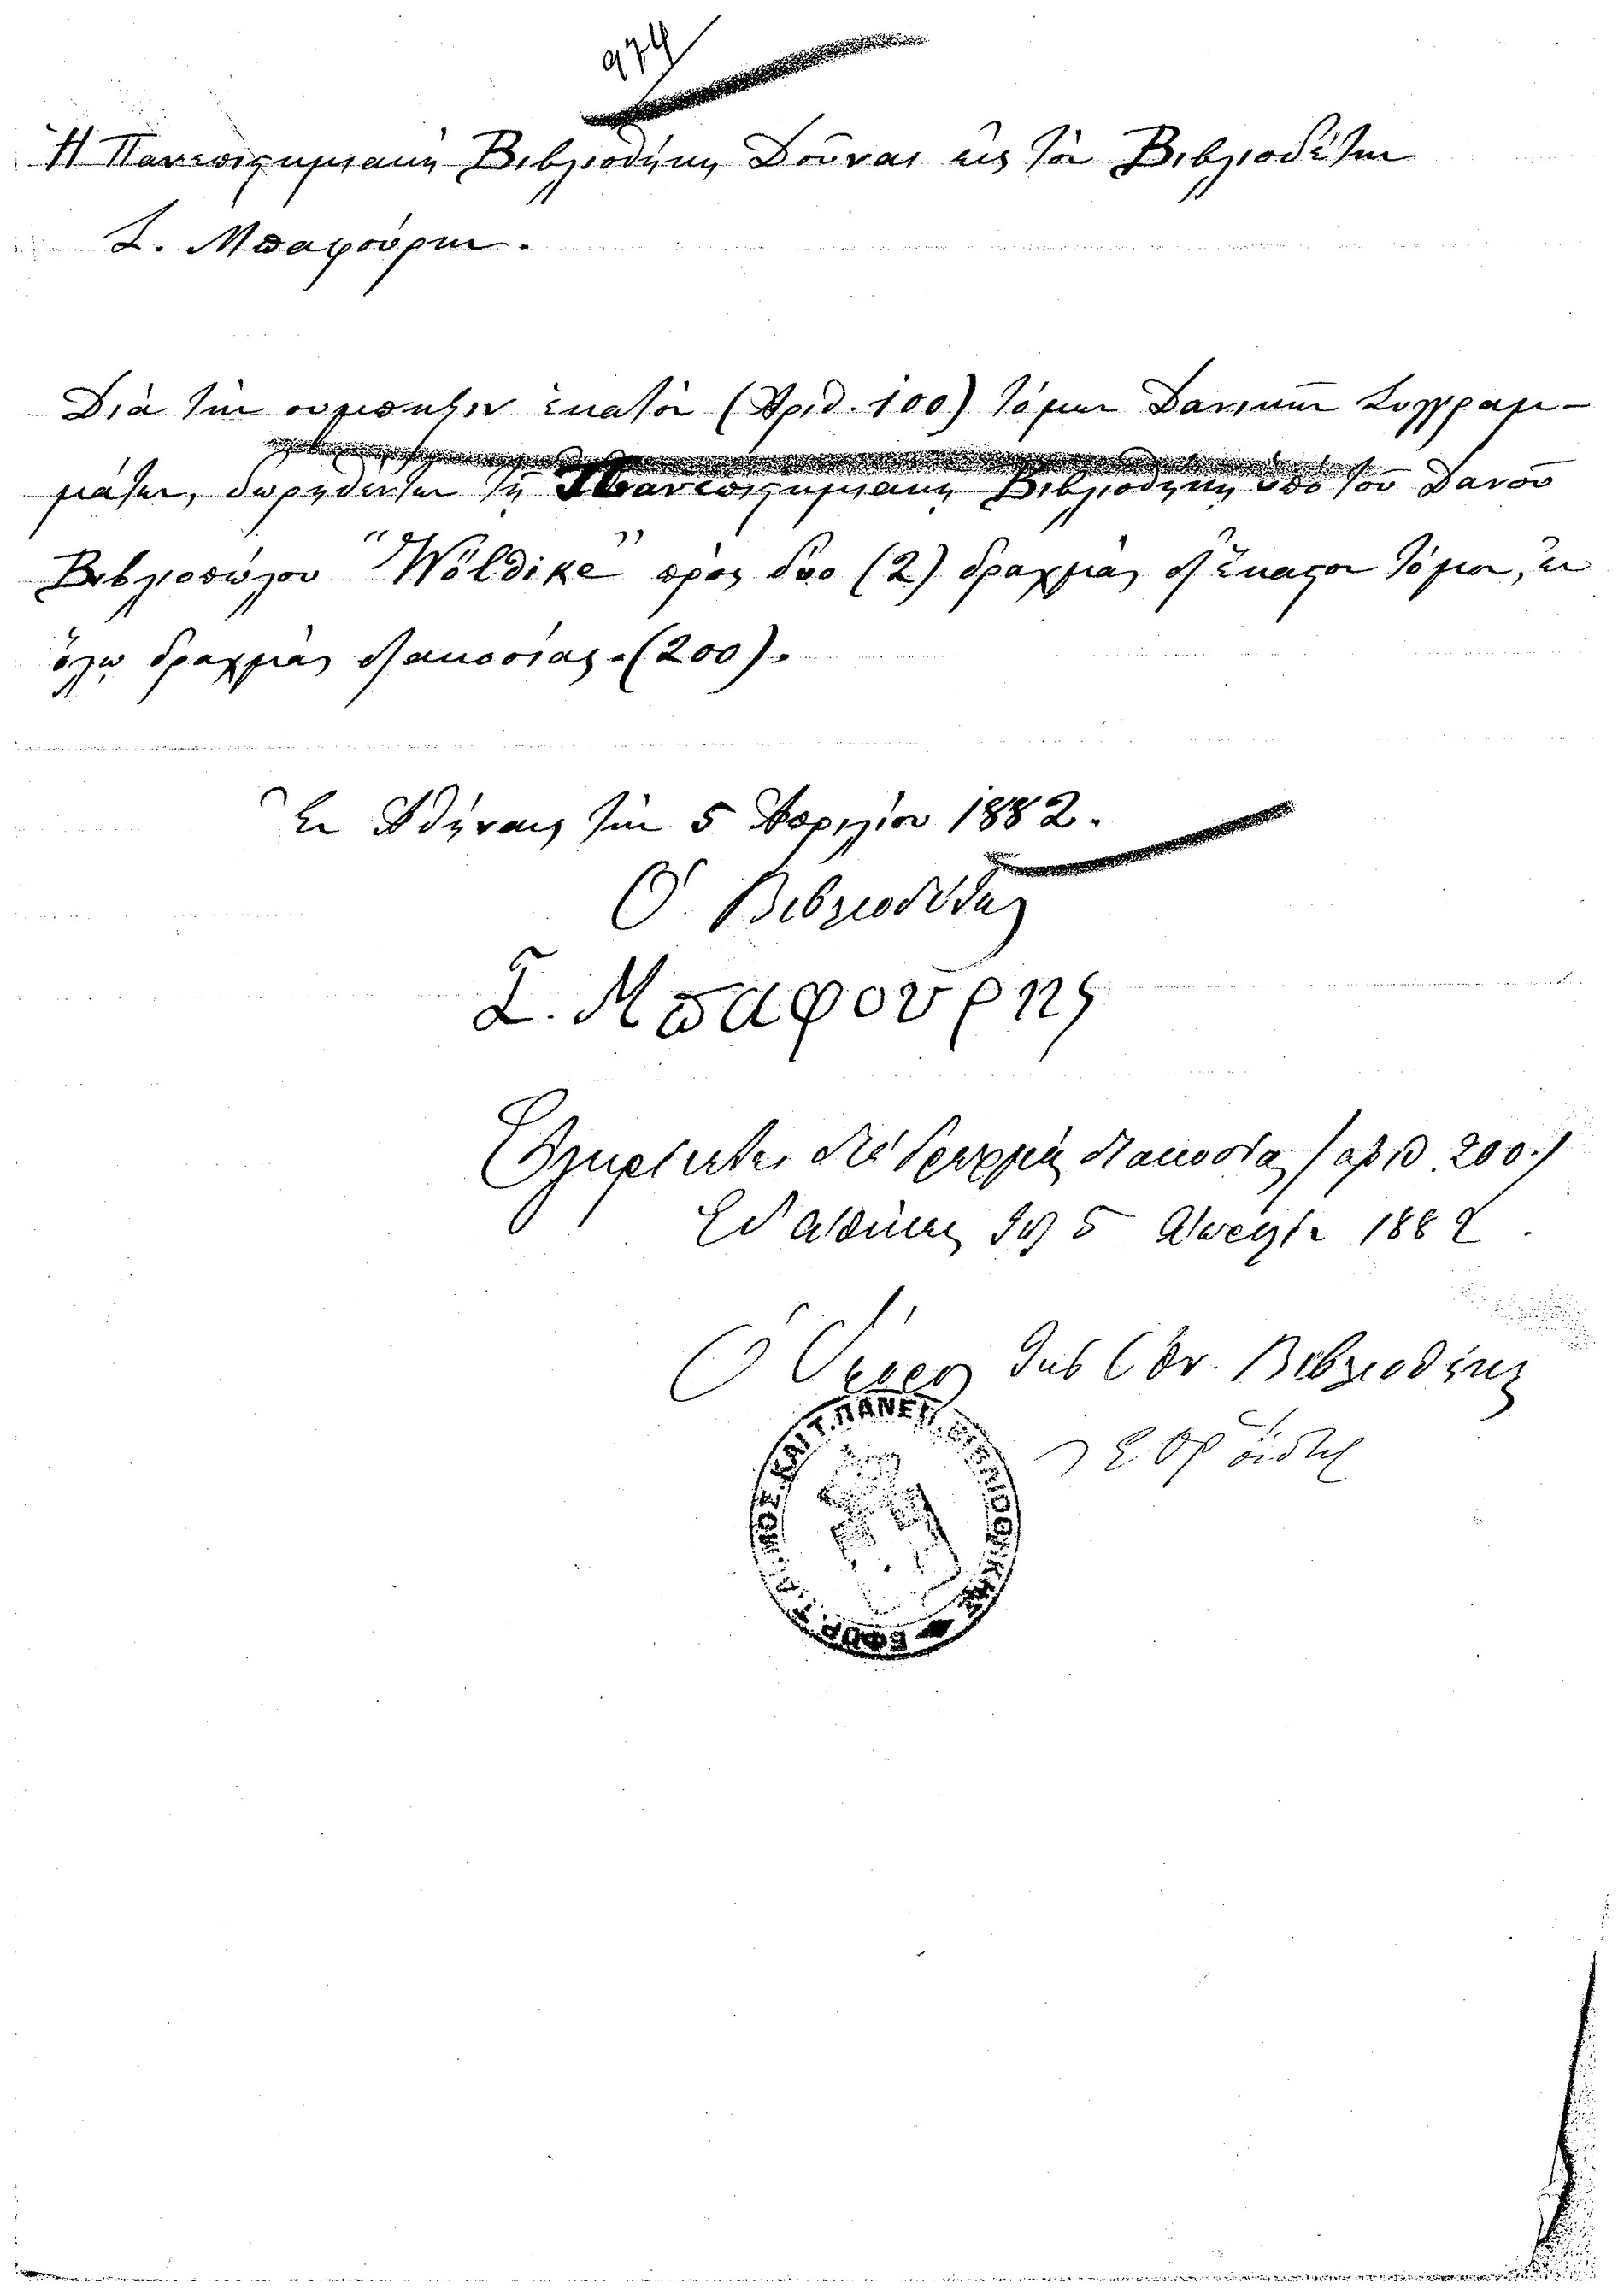 974
Ἡ Πανεπιστημιακὴ Βιβλιοθήκη Δοῦναι εἰς τὸν Βιβλιοδέτην
Σ. Μπαφούρην.
Διὰ τὴν συμπηξιν ἑκατὸν (Ἀριθ. 100) τόμων Δανικῶν Συγγραμ-
μάτων, δωρηθέντων τῇ Πανεπιστημιακῇ Βιβλιοθήκῃ ὑπὸ τοῦ Δανοῦ
Βιβλιοπώλου "Wöldike" πρὸς δύο (2) δραχμὰς δι' ἕκαστον τόμον, ἐν
ὅλῳ δραχμὰς διακοσίας.(200).
Ἐν Ἀθήναις τὴν 5 Ἀπριλίου 1882.
Ὁ Βιβλιοδέτης
Σ. Μπαφούρης
διὰ δραχμὰς διακοσίας (αριθ. 200.)
Ἐν Ἀθήναις τῇ 5 Ἀπριλίου 1882.
Ὁ Ἔφορος τῆς Ἐθν. Βιβλιοθήκης
ΕΦΟΡ. Τ. ΔΗΜΟΣ. ΚΑΙ Τ. ΠΑΝΕΠ. ΒΙΒΛΙΟΘΗΚΗΣ